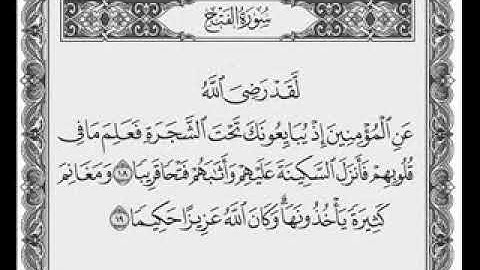 سُورَةُ الفَتْحِ
لَّقَدْ رَضِيَ ٱللَّهُ
عَنِ ٱلْمُؤْمِنِينَ إِذْ يُبَايِعُونَكَ تَحْتَ ٱلشَّجَرَةِ فَعَلِمَ مَا فِي
قُلُوبِهِمْ فَأَنزَلَ ٱلسَّكِينَةَ عَلَيْهِمْ وَأَثَٰبَهُمْ فَتْحًا قَرِيبًا ١٨ وَمَغَانِمَ
كَثِيرَةً يَأْخُذُونَهَا ۗ وَكَانَ ٱللَّهُ عَزِيزًا حَكِيمًا ١٩